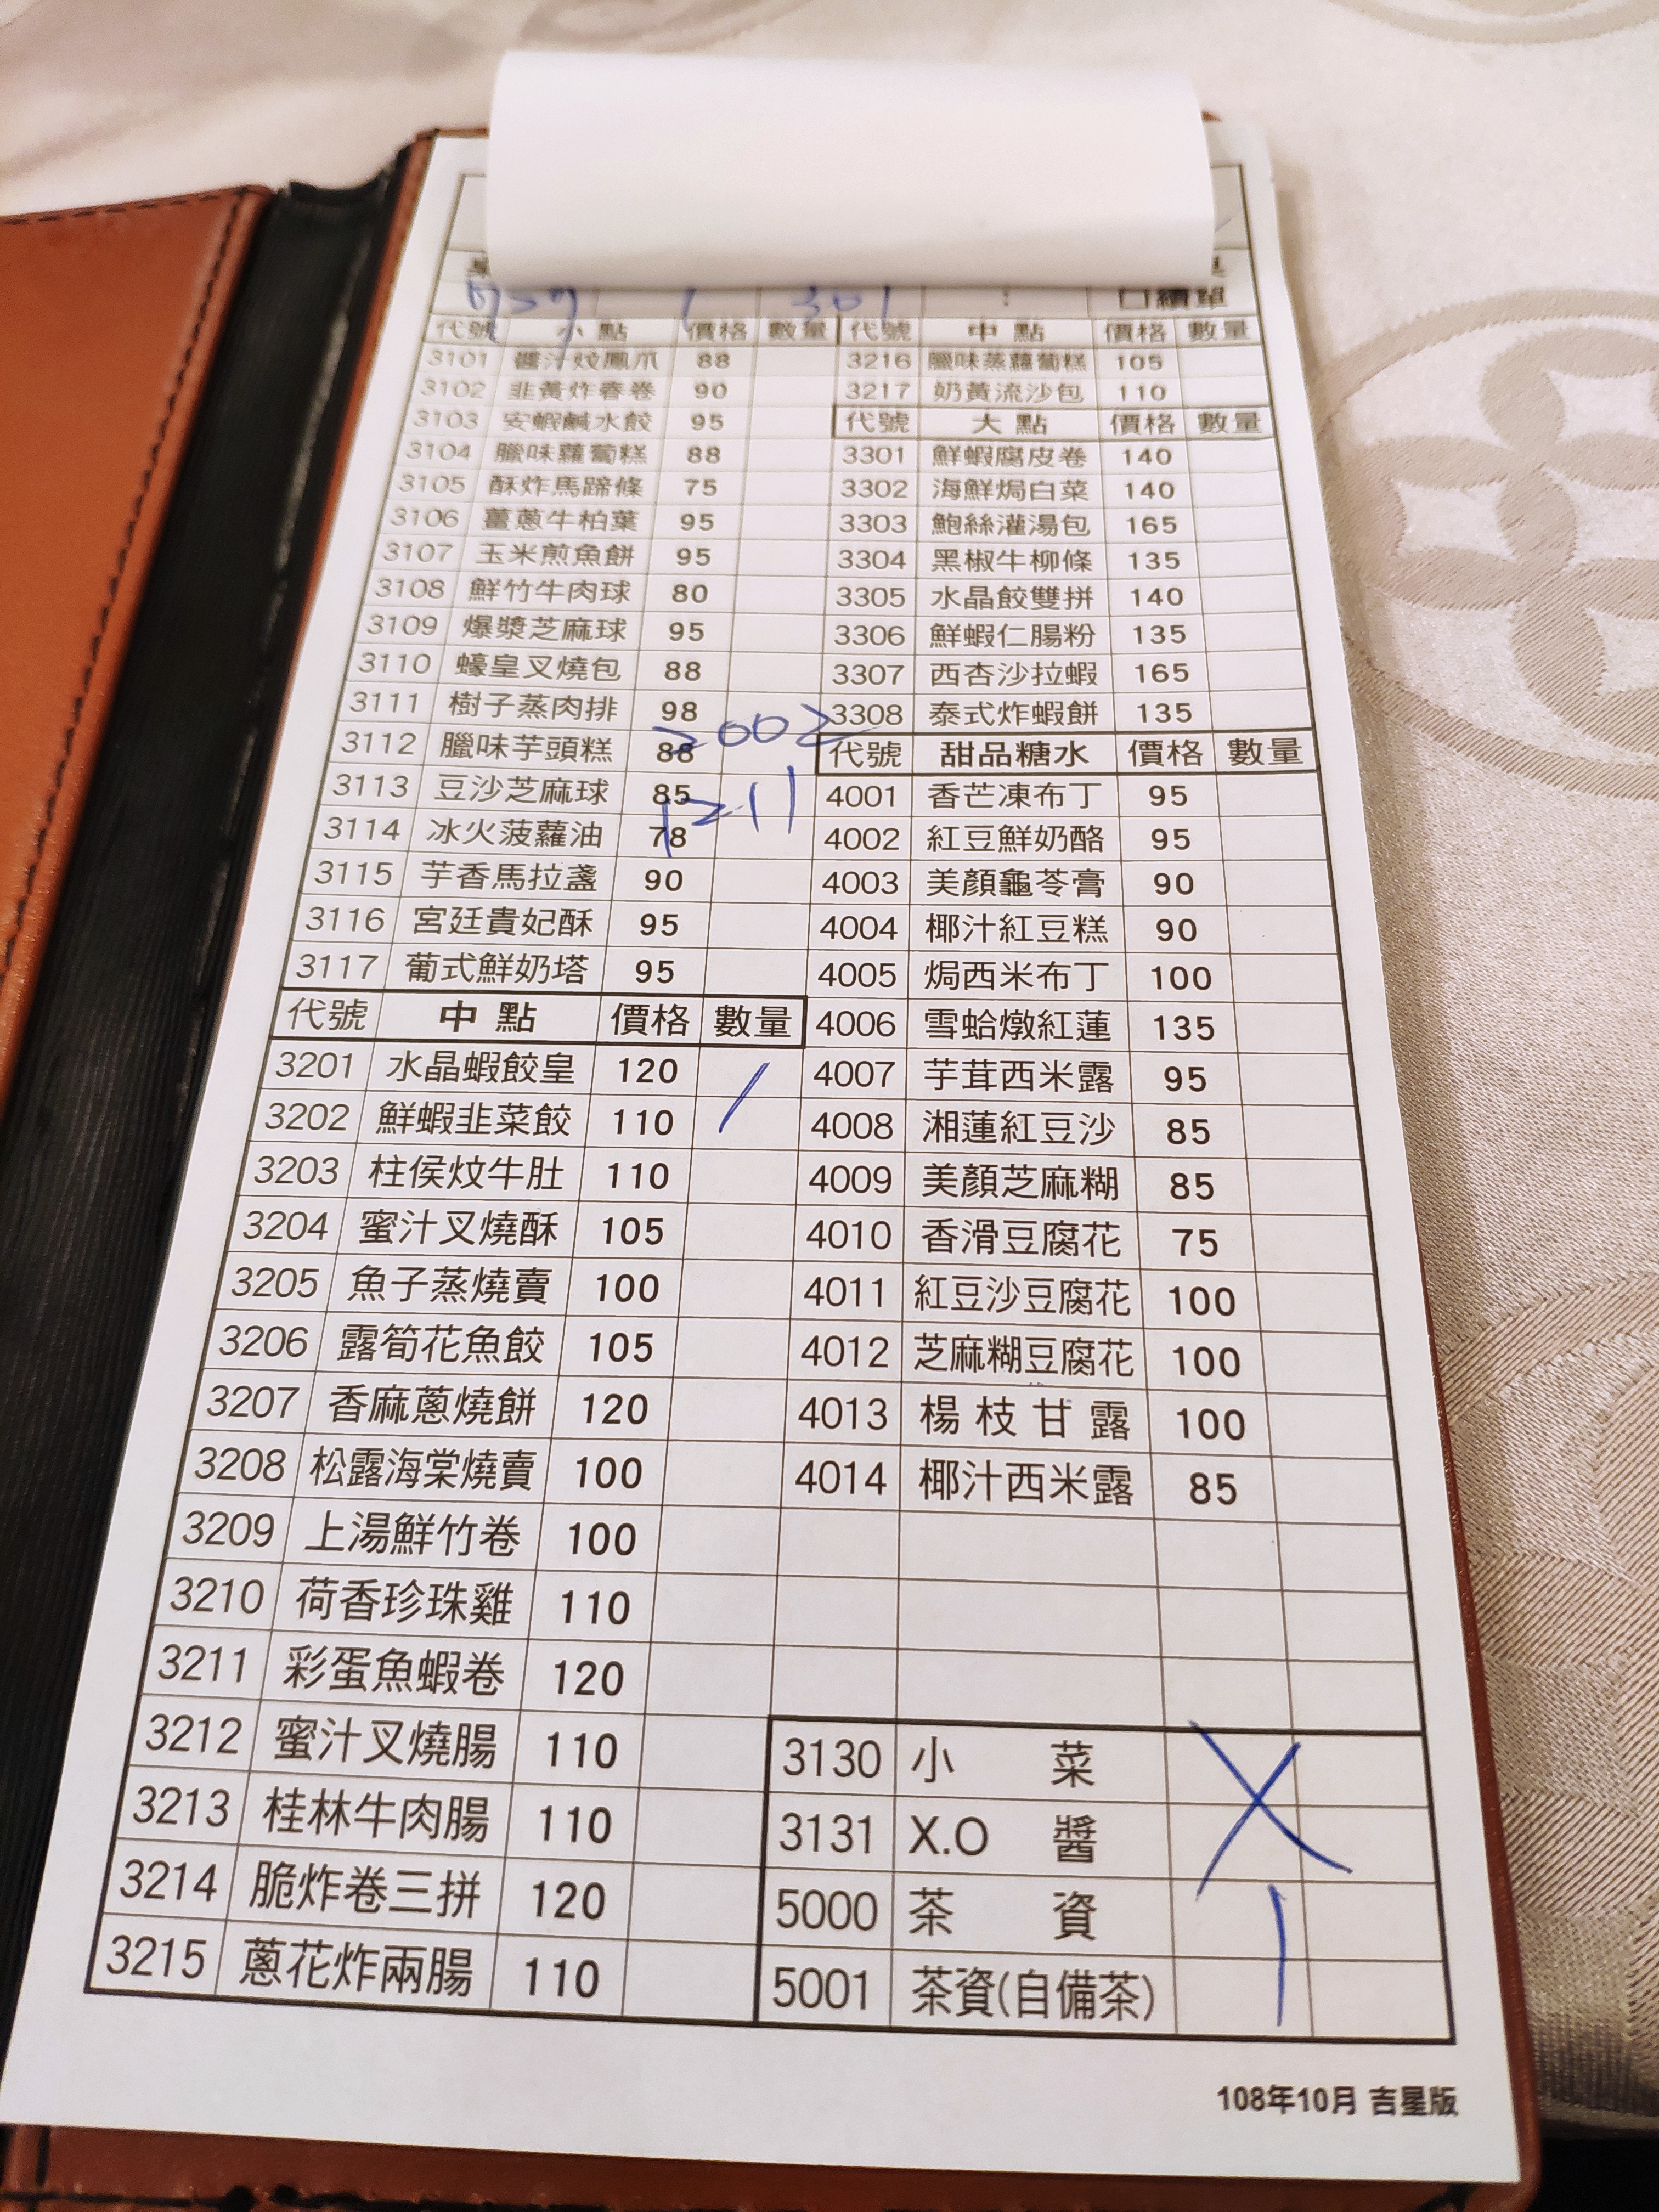 301
□續單
代號 小點 價格 數量
3101 醬汁炆鳳爪 88
3102 韭黃炸春卷 90
3103 安蝦鹹水餃 95
3104 臘味蘿蔔糕 88
3105 酥炸馬蹄條 75
3106 薑蔥牛柏葉 95
3107 玉米煎魚餅 95
3108 鮮竹牛肉球 80
3109 爆漿芝麻球 95
3110 蠔皇叉燒包 88
3111 樹子蒸肉排 98
3112 臘味芋頭糕 88
3113 豆沙芝麻球 85
3114 冰火菠蘿油 78
3115 芋香馬拉盞 90
3116 宮廷貴妃酥 95
3117 葡式鮮奶塔 95
2002
1211
代號 中點 價格 數量
3201 水晶蝦餃皇 120
3202 鮮蝦韭菜餃 110
3203 柱侯炆牛肚 110
3204 蜜汁叉燒酥 105
3205 魚子蒸燒賣 100
3206 露筍花魚餃 105
3207 香麻蔥燒餅 120
3208 松露海棠燒賣 100
3209 上湯鮮竹卷 100
3210 荷香珍珠雞 110
3211 彩蛋魚蝦卷 120
3212 蜜汁叉燒腸 110
3213 桂林牛肉腸 110
3214 脆炸卷三拼 120
3215 蔥花炸兩腸 110
代號 中點 價格 數量
3216 臘味蒸蘿蔔糕 105
3217 奶黃流沙包 110
代號 大點 價格 數量
3301 鮮蝦腐皮卷 140
3302 海鮮焗白菜 140
3303 鮑絲灌湯包 165
3304 黑椒牛柳條 135
3305 水晶餃雙拼 140
3306 鮮蝦仁腸粉 135
3307 西杏沙拉蝦 165
3308 泰式炸蝦餅 135
代號 甜品糖水 價格 數量
4001 香芒凍布丁 95
4002 紅豆鮮奶酪 95
4003 美顏龜苓膏 90
4004 椰汁紅豆糕 90
4005 焗西米布丁 100
4006 雪蛤燉紅蓮 135
4007 芋茸西米露 95
4008 湘蓮紅豆沙 85
4009 美顏芝麻糊 85
4010 香滑豆腐花 75
4011 紅豆沙豆腐花 100
4012 芝麻糊豆腐花 100
4013 楊枝甘露 100
4014 椰汁西米露 85
3130 小菜
3131 X.O 醬
5000 茶資
5001 茶資(自備茶)
108年10月 吉星版